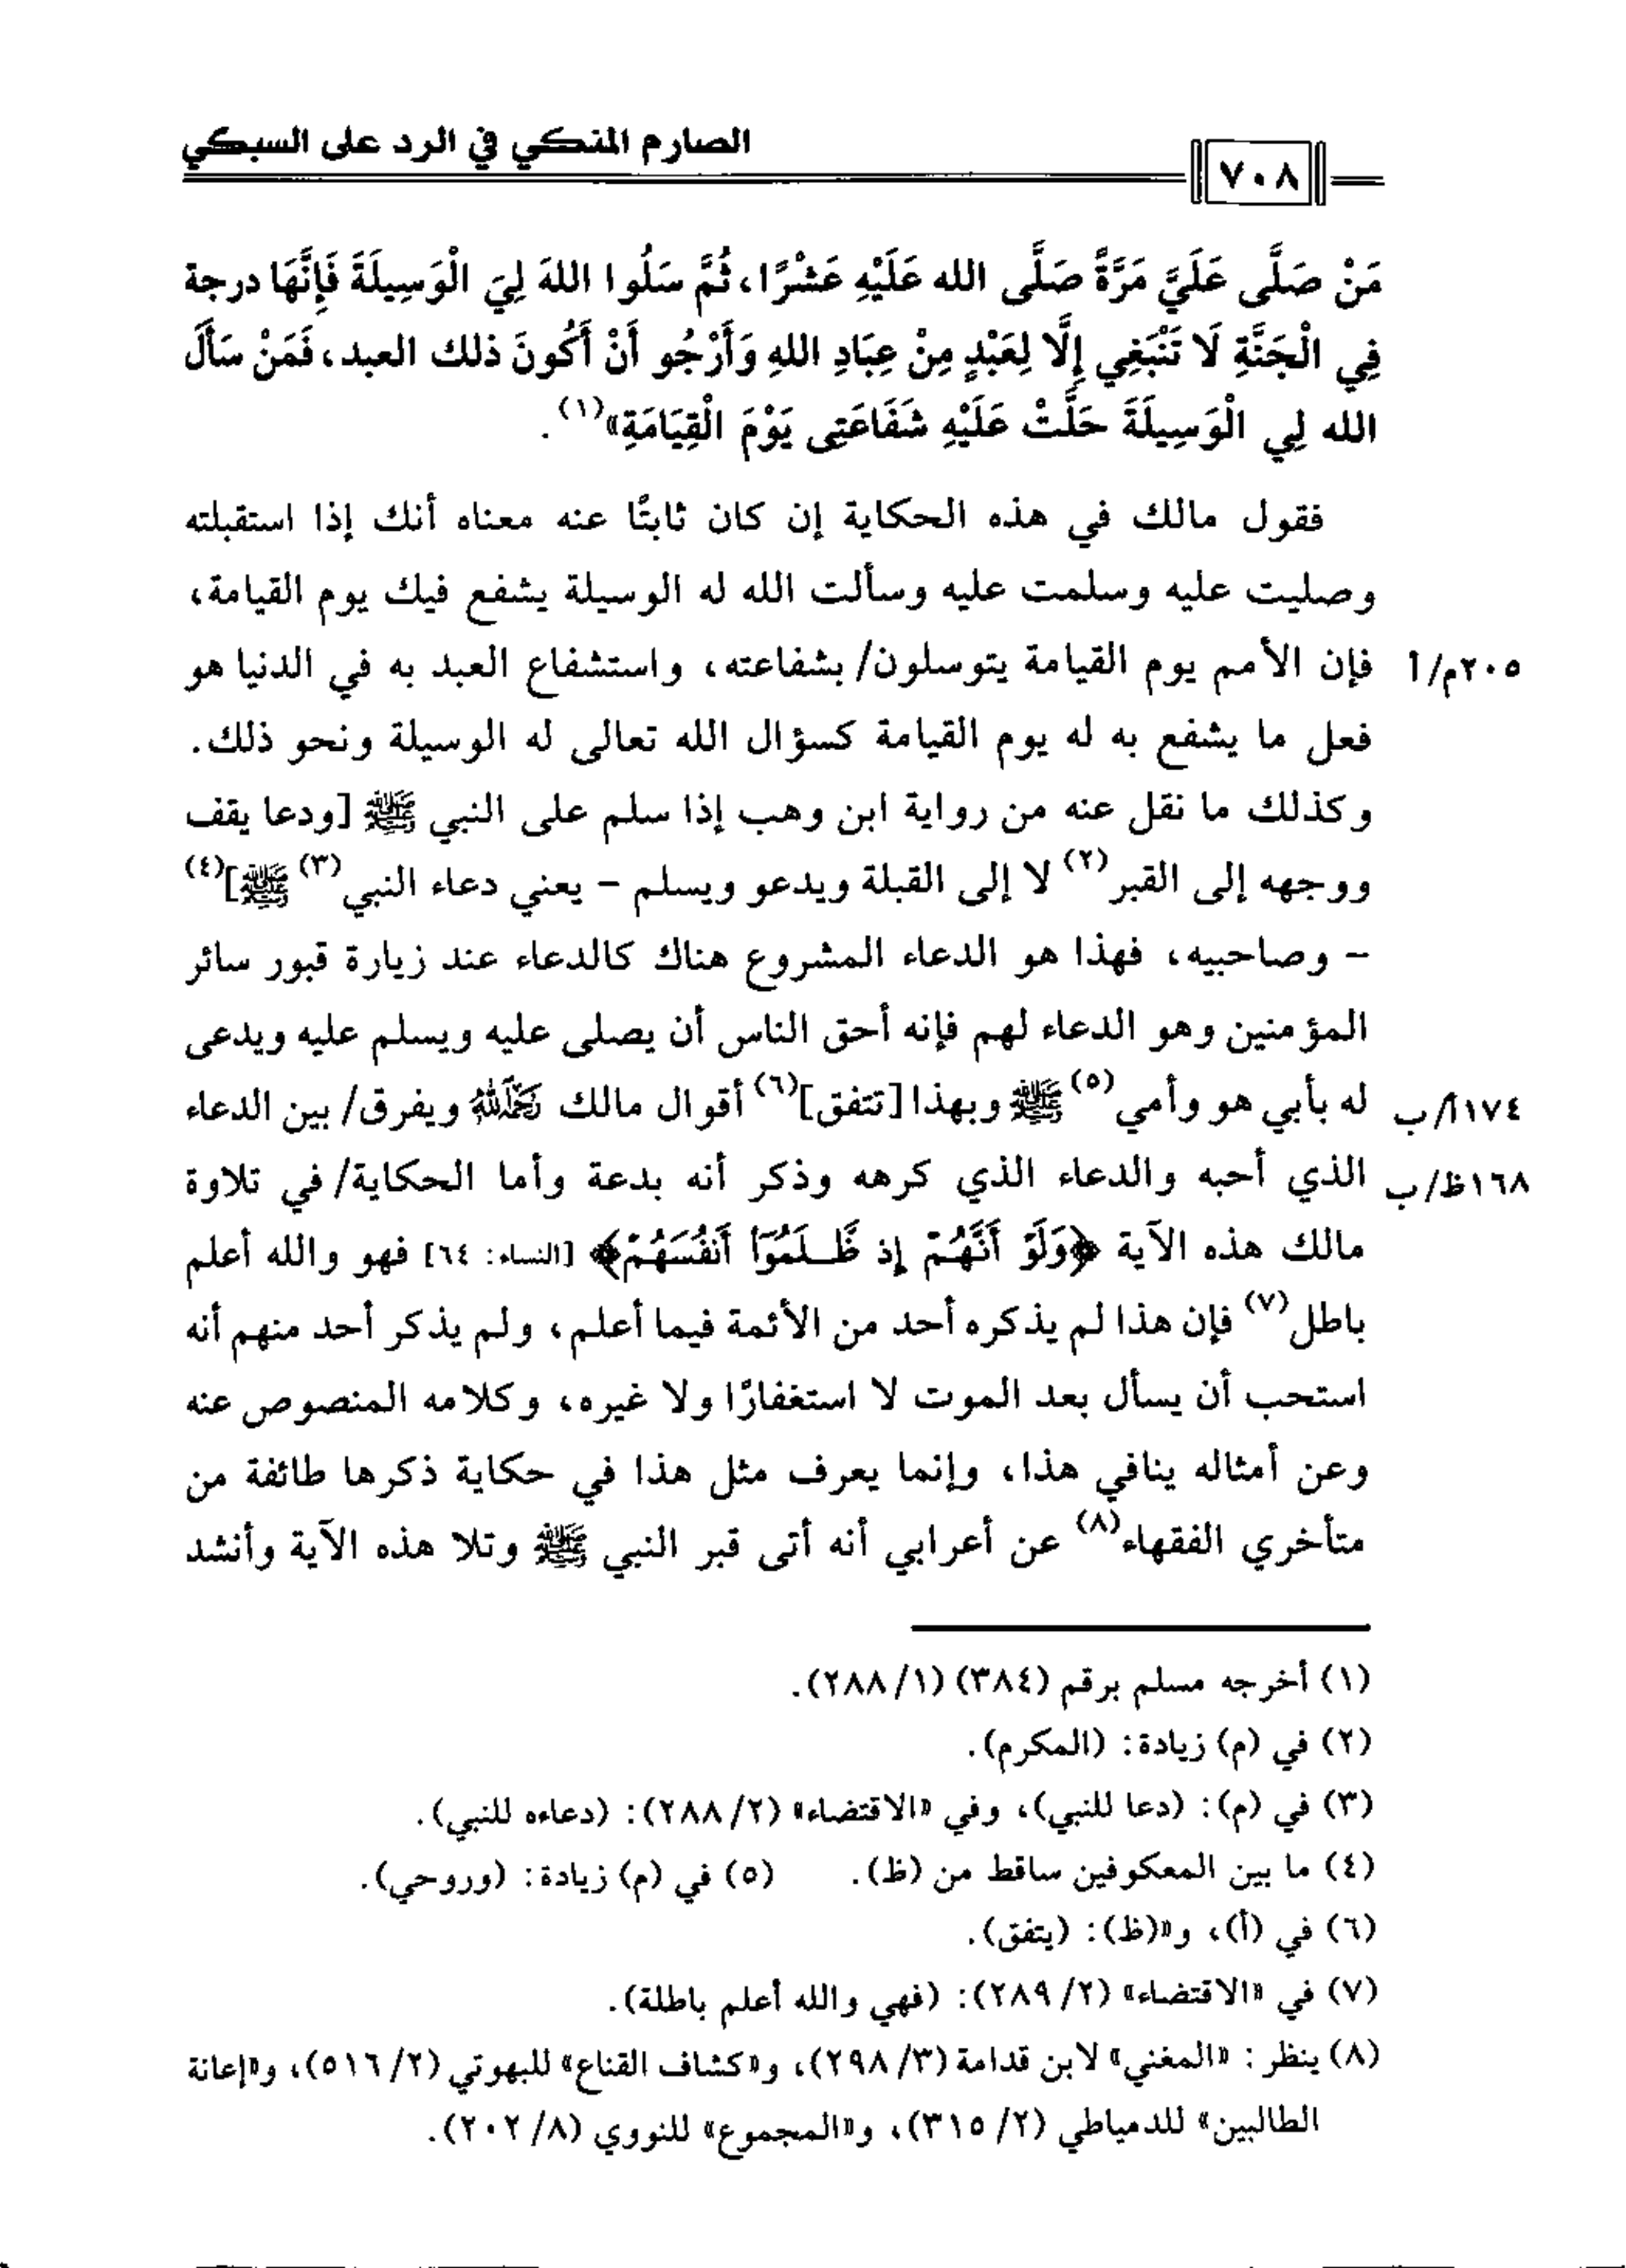 الصارم المنكي في الرد على السبكي
٧٠٨
مَنْ صَلَّى عَلَيَّ مَرَّةً صَلَّى الله عَلَيْهِ عَشْرًا، ثُمَّ سَلُوا اللهَ لِيَ الْوَسِيلَةَ فَإِنَّهَا درجة
فِي الْجَنَّةِ لَا تَنْبَغِي إِلَّا لِعَبْدٍ مِنْ عِبَادِ اللهِ وَأَرْجُو أَنْ أَكُونَ ذلك العبد، فَمَنْ سَأَلَ
الله لِي الْوَسِيلَةَ حَلَّتْ عَلَيْهِ شَفَاعَتِى يَوْمَ الْقِيَامَةِ»(١).
فقول مالك في هذه الحكاية إن كان ثابتًا عنه معناه أنك إذا استقبلته
وصليت عليه وسلمت عليه وسألت الله له الوسيلة يشفع فيك يوم القيامة،
٢٠٥م/أ فإن الأمم يوم القيامة يتوسلون/ بشفاعته، واستشفاع العبد به في الدنيا هو
فعل ما يشفع به له يوم القيامة كسؤال الله تعالى له الوسيلة ونحو ذلك.
وكذلك ما نقل عنه من رواية ابن وهب إذا سلم على النبي ﷺ [ودعا يقف
ووجهه إلى القبر(٢) لا إلى القبلة ويدعو ويسلم - يعني دعاء النبي(٣) ﷺ](٤)
- وصاحبيه، فهذا هو الدعاء المشروع هناك كالدعاء عند زيارة قبور سائر
المؤمنين وهو الدعاء لهم فإنه أحق الناس أن يصلى عليه ويسلم عليه ويدعى
١٧٤أ/ب له بأبي هو وأمي(٥) ﷺ وبهذا [تتفق](٦) أقوال مالك رَحِمَهُ اللَّهُ ويفرق/ بين الدعاء
١٦٨ظ/ب الذي أحبه والدعاء الذي كرهه وذكر أنه بدعة وأما الحكاية/ في تلاوة
مالك هذه الآية ﴿وَلَوْ أَنَّهُمْ إِذ ظَّلَمُوٓا أَنفُسَهُمْ﴾ [النساء: ٦٤] فهو والله أعلم
باطل(٧) فإن هذا لم يذكره أحد من الأئمة فيما أعلم، ولم يذكر أحد منهم أنه
استحب أن يسأل بعد الموت لا استغفارًا ولا غيره، وكلامه المنصوص عنه
وعن أمثاله ينافي هذا، وإنما يعرف مثل هذا في حكاية ذكرها طائفة من
متأخري الفقهاء(٨) عن أعرابي أنه أتى قبر النبي ﷺ وتلا هذه الآية وأنشد
(١) أخرجه مسلم برقم (٣٨٤) (١/ ٢٨٨).
(٢) في (م) زيادة: (المكرم).
(٣) في (م): (دعا للنبي)، وفي «الاقتضاء» (٢/ ٢٨٨): (دعاءه للنبي).
(٤) ما بين المعكوفين ساقط من (ظ). (٥) في (م) زيادة: (وروحي).
(٦) في (أ)، و«(ظ): (يتفق).
(٧) في «الاقتضاء» (٢/ ٢٨٩): (فهي والله أعلم باطلة).
(٨) ينظر: «المغني» لابن قدامة (٣/ ٢٩٨)، و«كشاف القناع» للبهوتي (٢/ ٥١٦)، و«إعانة
الطالبين» للدمياطي (٢/ ٣١٥)، و«المجموع» للنووي (٨/ ٢٠٢).